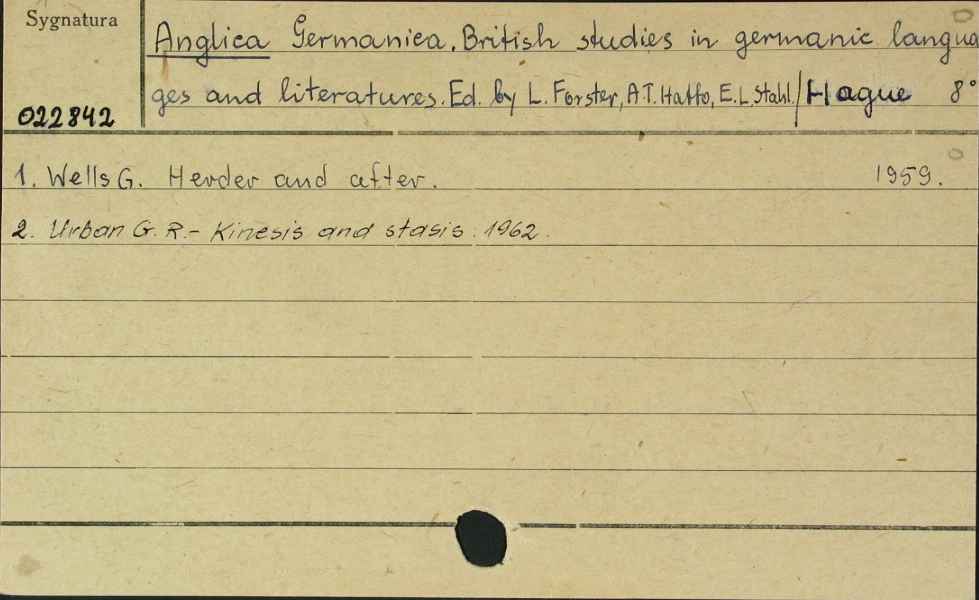 Sygnatura
Anglica Germanica. British studies in germanic langua
ges and literatures. Ed. by L. Forster, A.T. Hatto, E.L. Stahl. / Hague 8°
022842
1. Wells G. Herder and after. 1959.
2. Urban G. R. - Kinesis and stasis. 1962.